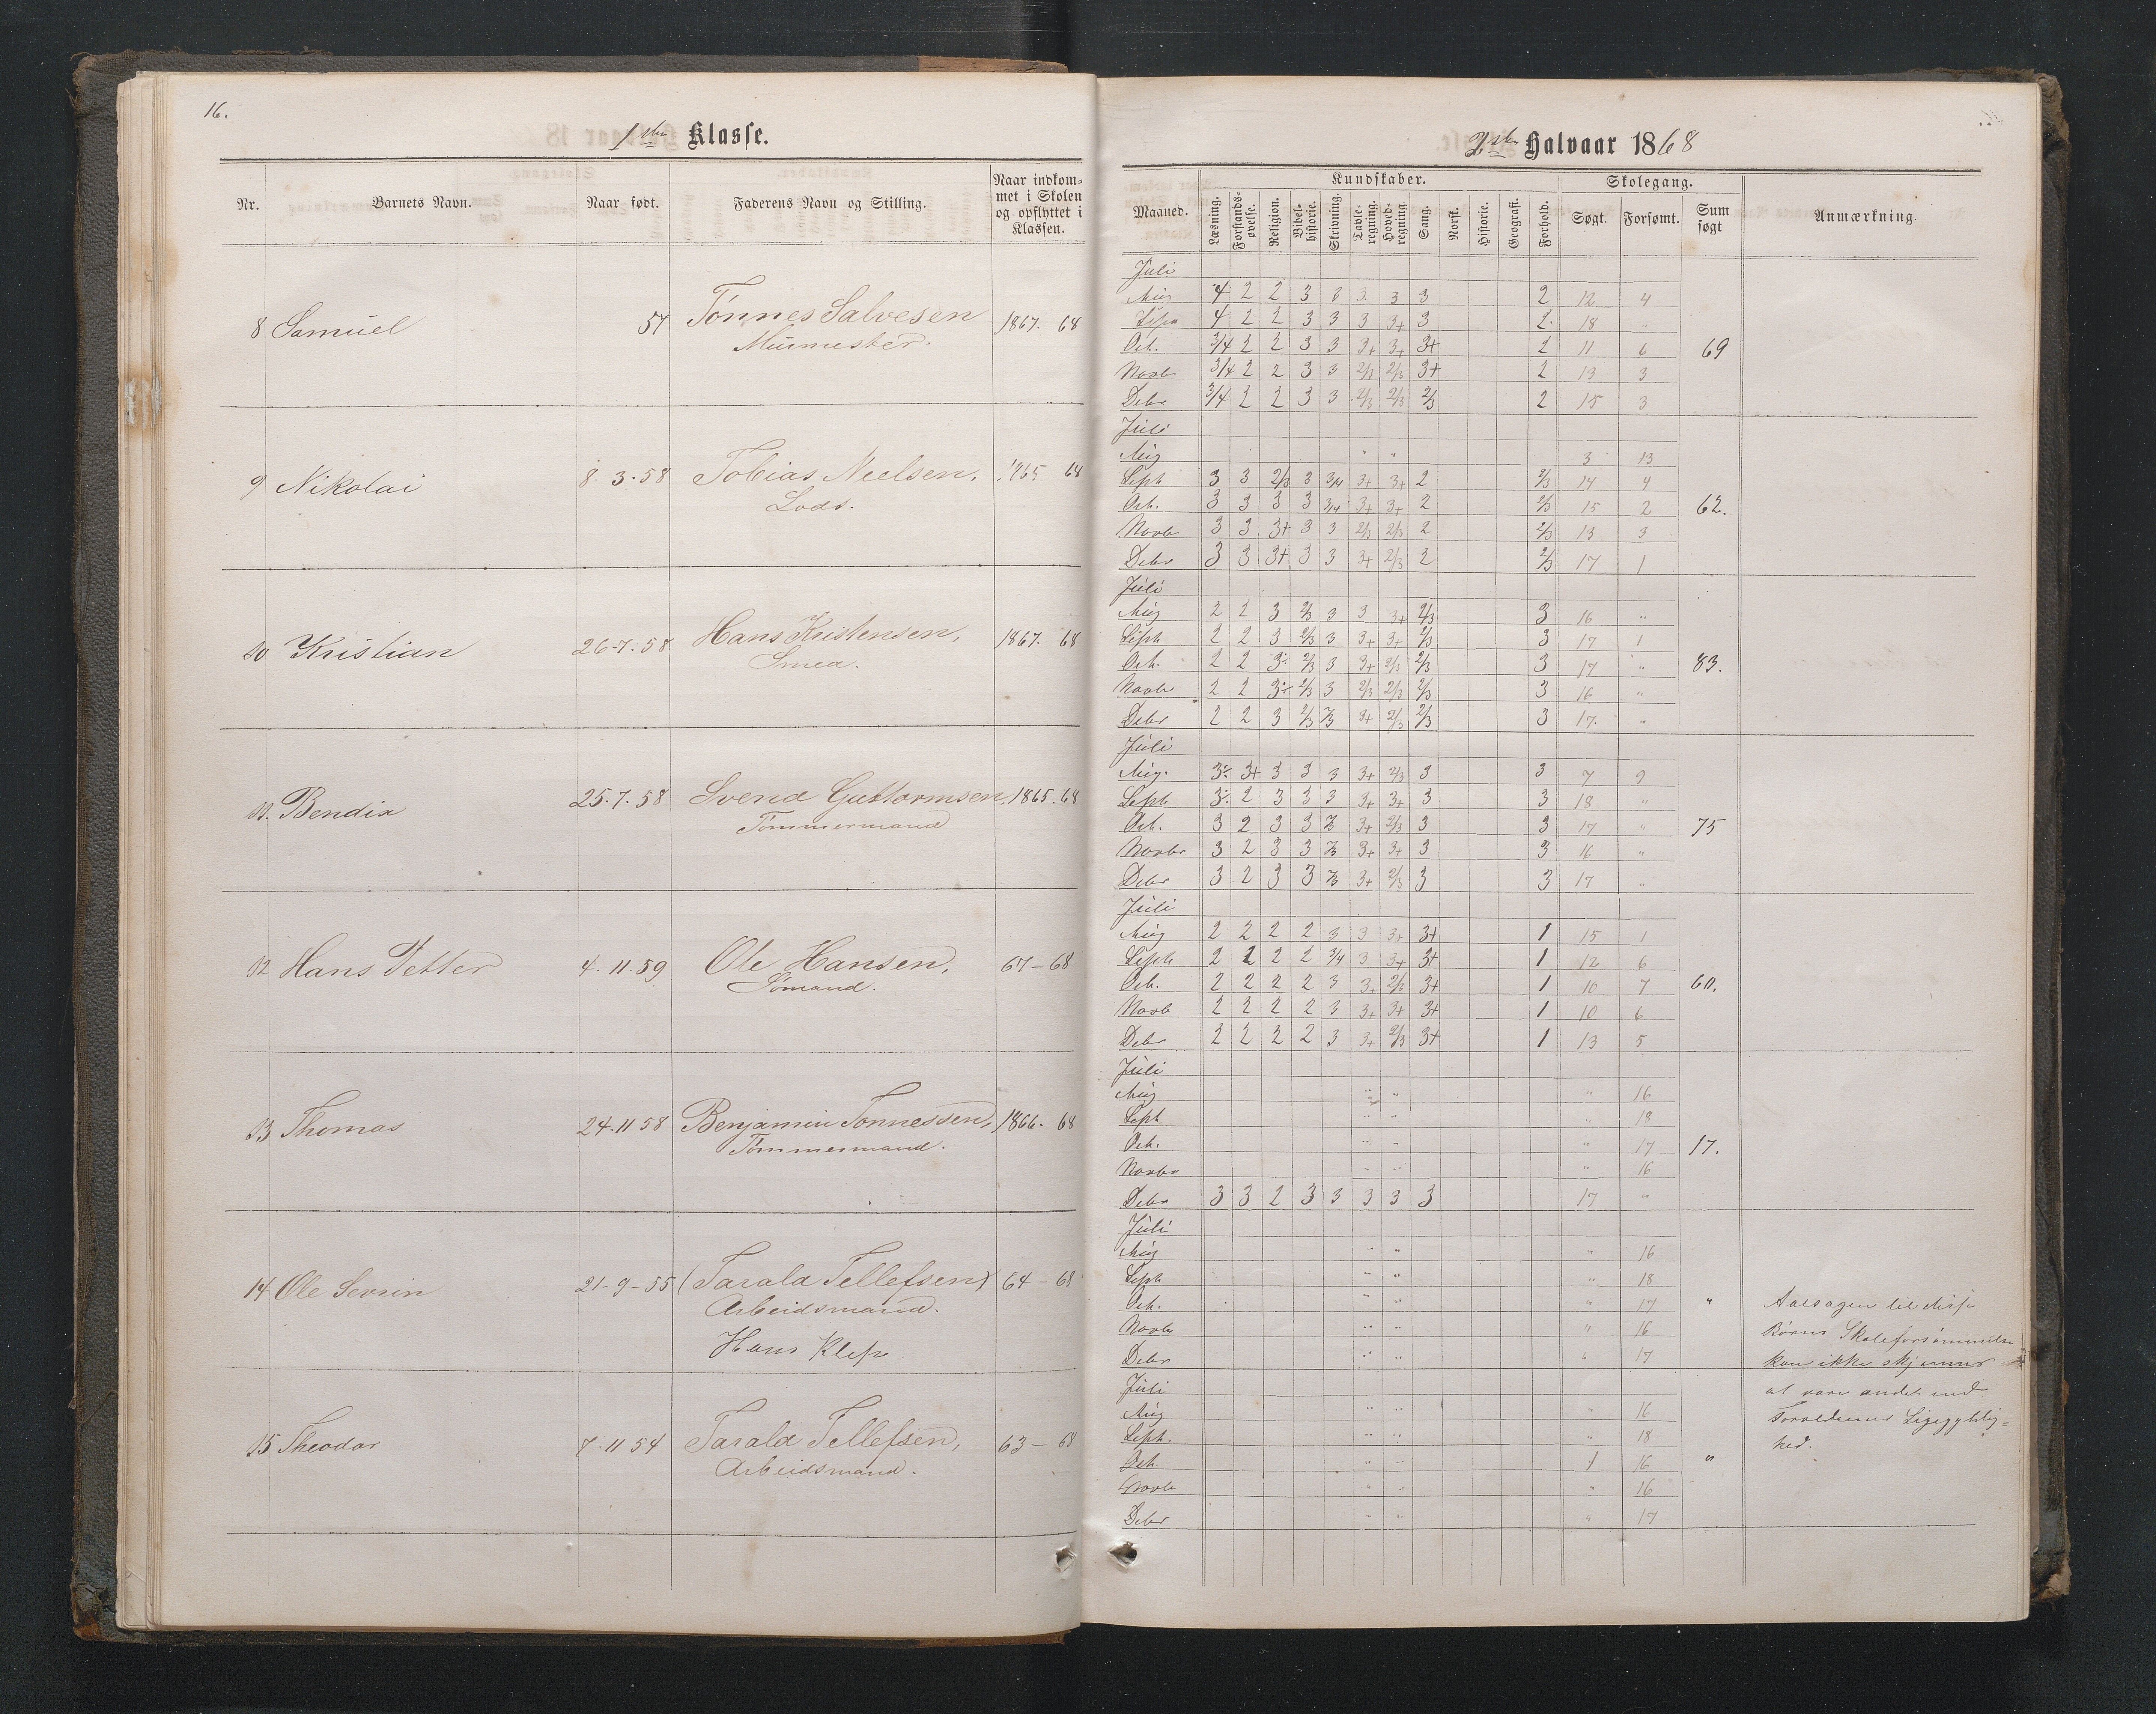 16.
1ste Klasse.
Nr. Barnets Navn. Naar født. Faderens Navn og Stilling. Naar indkom-
met i Skolen
og opflyttet i
Klassen.
8 Samuel 57 Tønnes Salvesen 1867. 68
Muurmester.
9 Nikolai 8.3.58 Tobias Nielsen, 1865 68
Lods.
10 Kristian 26-7.58 Hans Kristensen, 1867. 68
Smed.
11. Bendix 25.7.58 Svend Guttormsen, 1865. 68
Tømmermand
12 Hans Petter 4.11.59 Ole Hansen, 67-68
Sømand.
13 Thomas 24.11 58 Benjamin Tønnessen, 1866. 68
Tømmermand.
14 Ole Servin 21-9-55 (Tarald Tellefsen) 64-68
Arbeidsmand.
Hans Klep
15 Theodor 7.11 54 Tarald Tellefsen, 63-68
Arbeidsmand.
2det Halvaar 1868
Kundskaber. Skolegang.
Maaned. Læsning. Forstands-
øvelse. Religion. Bibel-
historie. Skrivning. Tavle-
regning. Hoved-
regning. Sang. Norsk. Historie. Geografi. Forhold. Søgt. Forsømt. Sum
søgt Anmærkning.
Juli
Aug 4 2 2 3 3 3 3 3 2 12 4
Sept 4 2 2 3 3 3 3+ 3 2 18 "
Oct. 3/4 2 2 3 3 3+ 3+ 3+ 2 11 6 69
Novb 3/4 2 2 3 3 2/3 2/3 3+ 2 13 3
Debr 3/4 2 2 3 3 2/3 2/3 2/3 2 15 3
Juli
Aug " " 3 13
Sept 3 3 2/3 3 3/4 3+ 3+ 2 2/3 14 4
Oct. 3 3 3 3 3/4 3+ 3+ 2 2/3 15 2 62.
Novb 3 3 3+ 3 3 2/3 2/3 2 2/3 13 3
Debr 3 3 3+ 3 3 3+ 2/3 2 2/3 17 1
Juli
Aug 2 2 3 2/3 3 3 3+ 2/3 3 16 "
Sept 2 2 3 2/3 3 3+ 3+ 2/3 3 17 1
Oct. 2 2 3÷ 2/3 3 3+ 2/3 2/3 3 17 " 83.
Novbr 2 2 3÷ 2/3 3 2/3 2/3 2/3 3 16 "
Debr 2 2 3 2/3 2/3 3+ 2/3 2/3 3 17. "
Juli
Aug. 3÷ 3+ 3 3 3 3+ 2/3 3 3 7 9
Sept 3÷ 2 3 3 3 3+ 3+ 3 3 18 "
Oct. 3 2 3 3 2/3 3+ 2/3 3 3 17 " 75
Novbr 3 2 3 3 2/3 3+ 3+ 3 3 16 "
Debr 3 2 3 3 2/3 3+ 2/3 3 3 17 "
Juli
Aug 2 2 2 2 3 3 3+ 3+ 1 15 1
Sept 2 2 2 2 3/4 3 3+ 3+ 1 12 6
Oct. 2 2 2 2 3 3+ 2/3 3+ 1 10 7 60.
Novb 2 2 2 2 3 3+ 3+ 3+ 1 10 6
Debr 2 2 2 2 3 3+ 2/3 3+ 1 13 5
Juli
Aug " " " 16
Sept " " " 18
Oct. " " " 17 17.
Novbr " " " 16
Debr 3 3 2 3 3 3 3 3 17 "
Juli
Aug " " " 16
Sept " " " 18
Oct. " " " 17 " Aarsagen til disse
Novb " " " 16 Børns Skoleforsømmelse
Debr " " " 17 kan ikke skjønnes
Juli at være andet end
Aug " " " 16 Forældrenes Ligegyldig=
Sept. " " " 18 hed.
Oct. " " 1 16 "
Novb " " " 16
Debr " " " 17